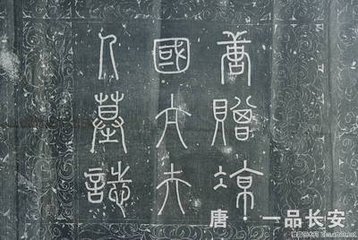 唐贈
國太夫
人墓誌
唐·一品长安